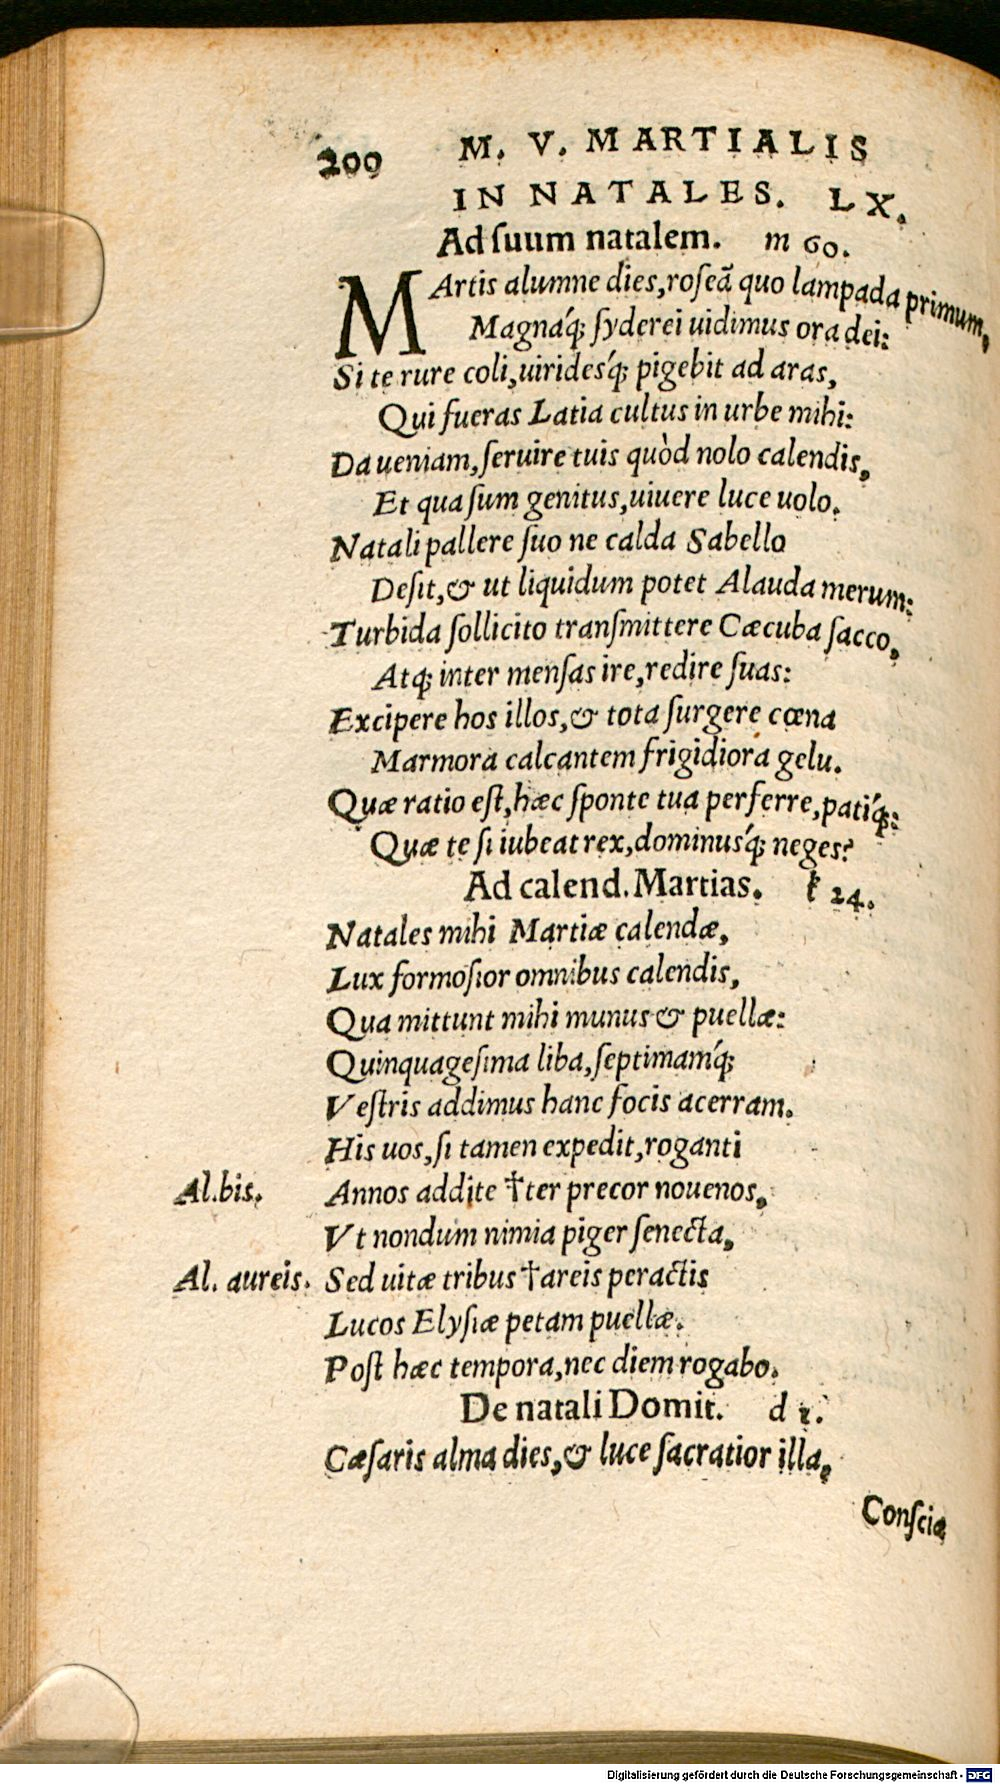 200 M. V. MARTIALIS
IN NATALES. LX.
Ad ſuum natalem. m 60.
MArtis alumne dies,roſeã quo lampada primum,
Magnáq; ſyderei uidimus ora dei:
Si te rure coli,uiridesq́; pigebit ad aras,
Qui fueras Latia cultus in urbe mihi:
Da ueniam,ſeruire tuis quòd nolo calendis,
Et qua ſum genitus,uiuere luce uolo.
Natali pallere ſuo ne calda Sabello
Deſit,& ut liquidum potet Alauda merum:
Turbida ſollicito tranſmittere Cæcuba ſacco,
Atq; inter menſas ire,redire ſuas:
Excipere hos illos,& tota ſurgere cœna
Marmora calcantem frigidiora gelu.
Quæ ratio eſt,hæc ſponte tua perferre,patiq́;:
Quæ te ſi iubeat rex,dominusq́; neges?
Ad calend.Martias. k 24.
Natales mihi Martiæ calendæ,
Lux formoſior omnibus calendis,
Qua mittunt mihi munus & puellæ:
Quinquageſima liba,ſeptimamq́;
Veſtris addimus hanc focis acerram.
His uos,ſi tamen expedit,roganti
Al.bis. Annos addite †ter precor nouenos,
Vt nondum nimia piger ſenecta,
Al. aureis. Sed uitæ tribus †areis peractis
Lucos Elyſiæ petam puellæ.
Poſt hæc tempora,nec diem rogabo.
De natali Domit. d 1.
Cæſaris alma dies,& luce ſacratior illa,
Conſcia
Digitalisierung gefördert durch die Deutsche Forschungsgemeinschaft - DFG